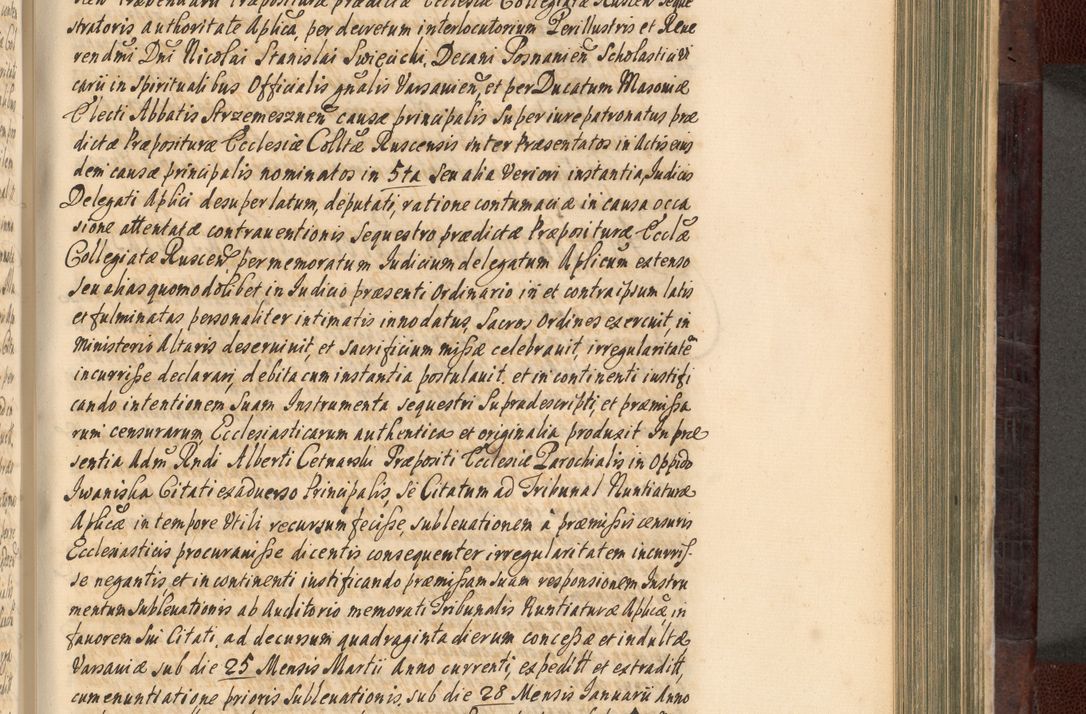 stratoris authoritate Aplica, per decretum interlocutorium Perillustris et Reue
rendmi Dni Nicolai Stanislai Swięcicki, Decani Posnanien Scholastici Vi
carii in Spiritualibus Officialis gnalis Varsavien, et per Ducatum Masoviæ
Electi Abbatis Strzemesznen causæ principalis super iurepatronatus præ
dictæ Præposituræ Ecclesiæ Colltæ Ruscensis inter Præsentatos in Actis eius
dem causæ principalis nominatos in 5ta seu alia Veriori instantia, Judicis
Delegati Aplici desuper latum, deputati, ratione contumaciæ in causa occa
sione attentatæ contraventionis sequestro prædictæ Præposituræ Ecclæ
Collegiatæ Ruscen per memoratum Judicium delegatum Aplicum extenso
seu alias quomodolibet in Judicio præsenti Ordinario in et contra ipsum latis
et fulminatas personaliter intimatis innodatus, Sacros Ordines exercuit, in
Ministerio Altaris deseruiuit, et sacrificium missæ celebrauit, irregularitate
incurrisse declarari, debita cum instantia postulauit, et in continenti iustifi
cando intentionem suam Instrumenta sequestri supradescripti, et præmissa
rum censurarum Ecclesiasticarum authentica et originalia produxit In præ
sentia Adm Rndi Alberti Cetnarski Præpositi Ecclesiæ Parochialis in Oppido
Iwaniska Citati ex aduerso Principalis, se Citatum ad Tribunal Nuntiaturæ
Aplicæ in tempore Vtili recursum fecisse, subleuationem à præmissis censuris
Ecclesiasticis procurauisse dicentis consequenter irregularitatem incurris-
se negantis, et in continenti iustificando præmissam suam responsionem Instru
mentum subleuationis ab Auditorio memorati Tribunalis Nuntiaturæ Aplicæ, in
fauorem sui Citati, ad decursum quadraginta dierum concessæ et indultæ
Varsaviæ sub die 25 Mensis Martii Anno currenti, expeditt et extraditt,
cum enuntiatione prioris Subleuationis, sub die 28 Mensis Januarii Anno